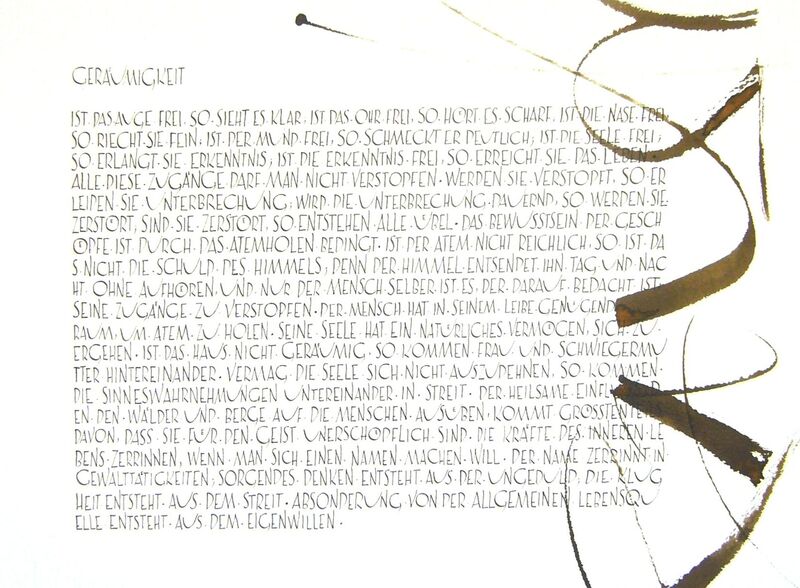 GERÄUMIGKEIT
IST DAS AUGE FREI, SO SIEHT ES KLAR, IST DAS OHR FREI, SO HÖRT ES SCHARF, IST DIE NASE FREI,
SO RIECHT SIE FEIN, IST DER MUND FREI, SO SCHMECKT ER DEUTLICH; IST DIE SEELE FREI,
SO ERLANGT SIE ERKENNTNIS; IST DIE ERKENNTNIS FREI, SO ERREICHT SIE DAS LEBEN·
ALLE DIESE ZUGÄNGE DARF MAN NICHT VERSTOPFEN· WERDEN SIE VERSTOPFT, SO ER
LEIDEN SIE UNTERBRECHUNG; WIRD DIE UNTERBRECHUNG DAUERND, SO WERDEN SIE
ZERSTÖRT, SIND SIE ZERSTÖRT, SO ENTSTEHEN ALLE ÜBEL· DAS BEWUSSTSEIN DER GESCH
ÖPFE IST DURCH DAS ATEMHOLEN BEDINGT· IST DER ATEM NICHT REICHLICH, SO IST DA
S NICHT DIE SCHULD DES HIMMELS; DENN DER HIMMEL ENTSENDET IHN TAG UND NAC
HT OHNE AUFHÖREN, UND NUR DER MENSCH SELBER IST ES, DER DARAUF BEDACHT IST
SEINE ZUGÄNGE ZU VERSTOPFEN· DER MENSCH HAT IN SEINEM LEIBE GENÜGEND
RAUM, UM ATEM ZU HOLEN· SEINE SEELE HAT EIN NATÜRLICHES VERMÖGEN, SICH ZU
ERGEHEN· IST DAS HAUS NICHT GERÄUMIG, SO KOMMEN FRAU UND SCHWIEGERMU
TTER HINTEREINANDER· VERMAG DIE SEELE SICH NICHT AUSZUDEHNEN, SO KOMMEN
DIE SINNESWAHRNEHMUNGEN UNTEREINANDER IN STREIT· DER HEILSAME
EN DEN WÄLDER UND BERGE AUF DIE MENSCHEN AUSÜBEN, KOMMT GRÖSSTENTEILS
DAVON, DASS SIE FÜR DEN GEIST UNERSCHÖPFLICH SIND· DIE KRÄFTE DES INNEREN LE
BENS ZERRINNEN, WENN MAN SICH EINEN NAMEN MACHEN WILL· DER NAME ZERRINNT IN
GEWALTTÄTIGKEITEN; SORGENDES DENKEN ENTSTEHT AUS DER UNGEDULD; DIE KLUG
HEIT ENTSTEHT AUS DEM STREIT· ABSONDERUNG VON DER ALLGEMEINEN LEBENSQU
ELLE ENTSTEHT AUS DEM EIGENWILLEN·